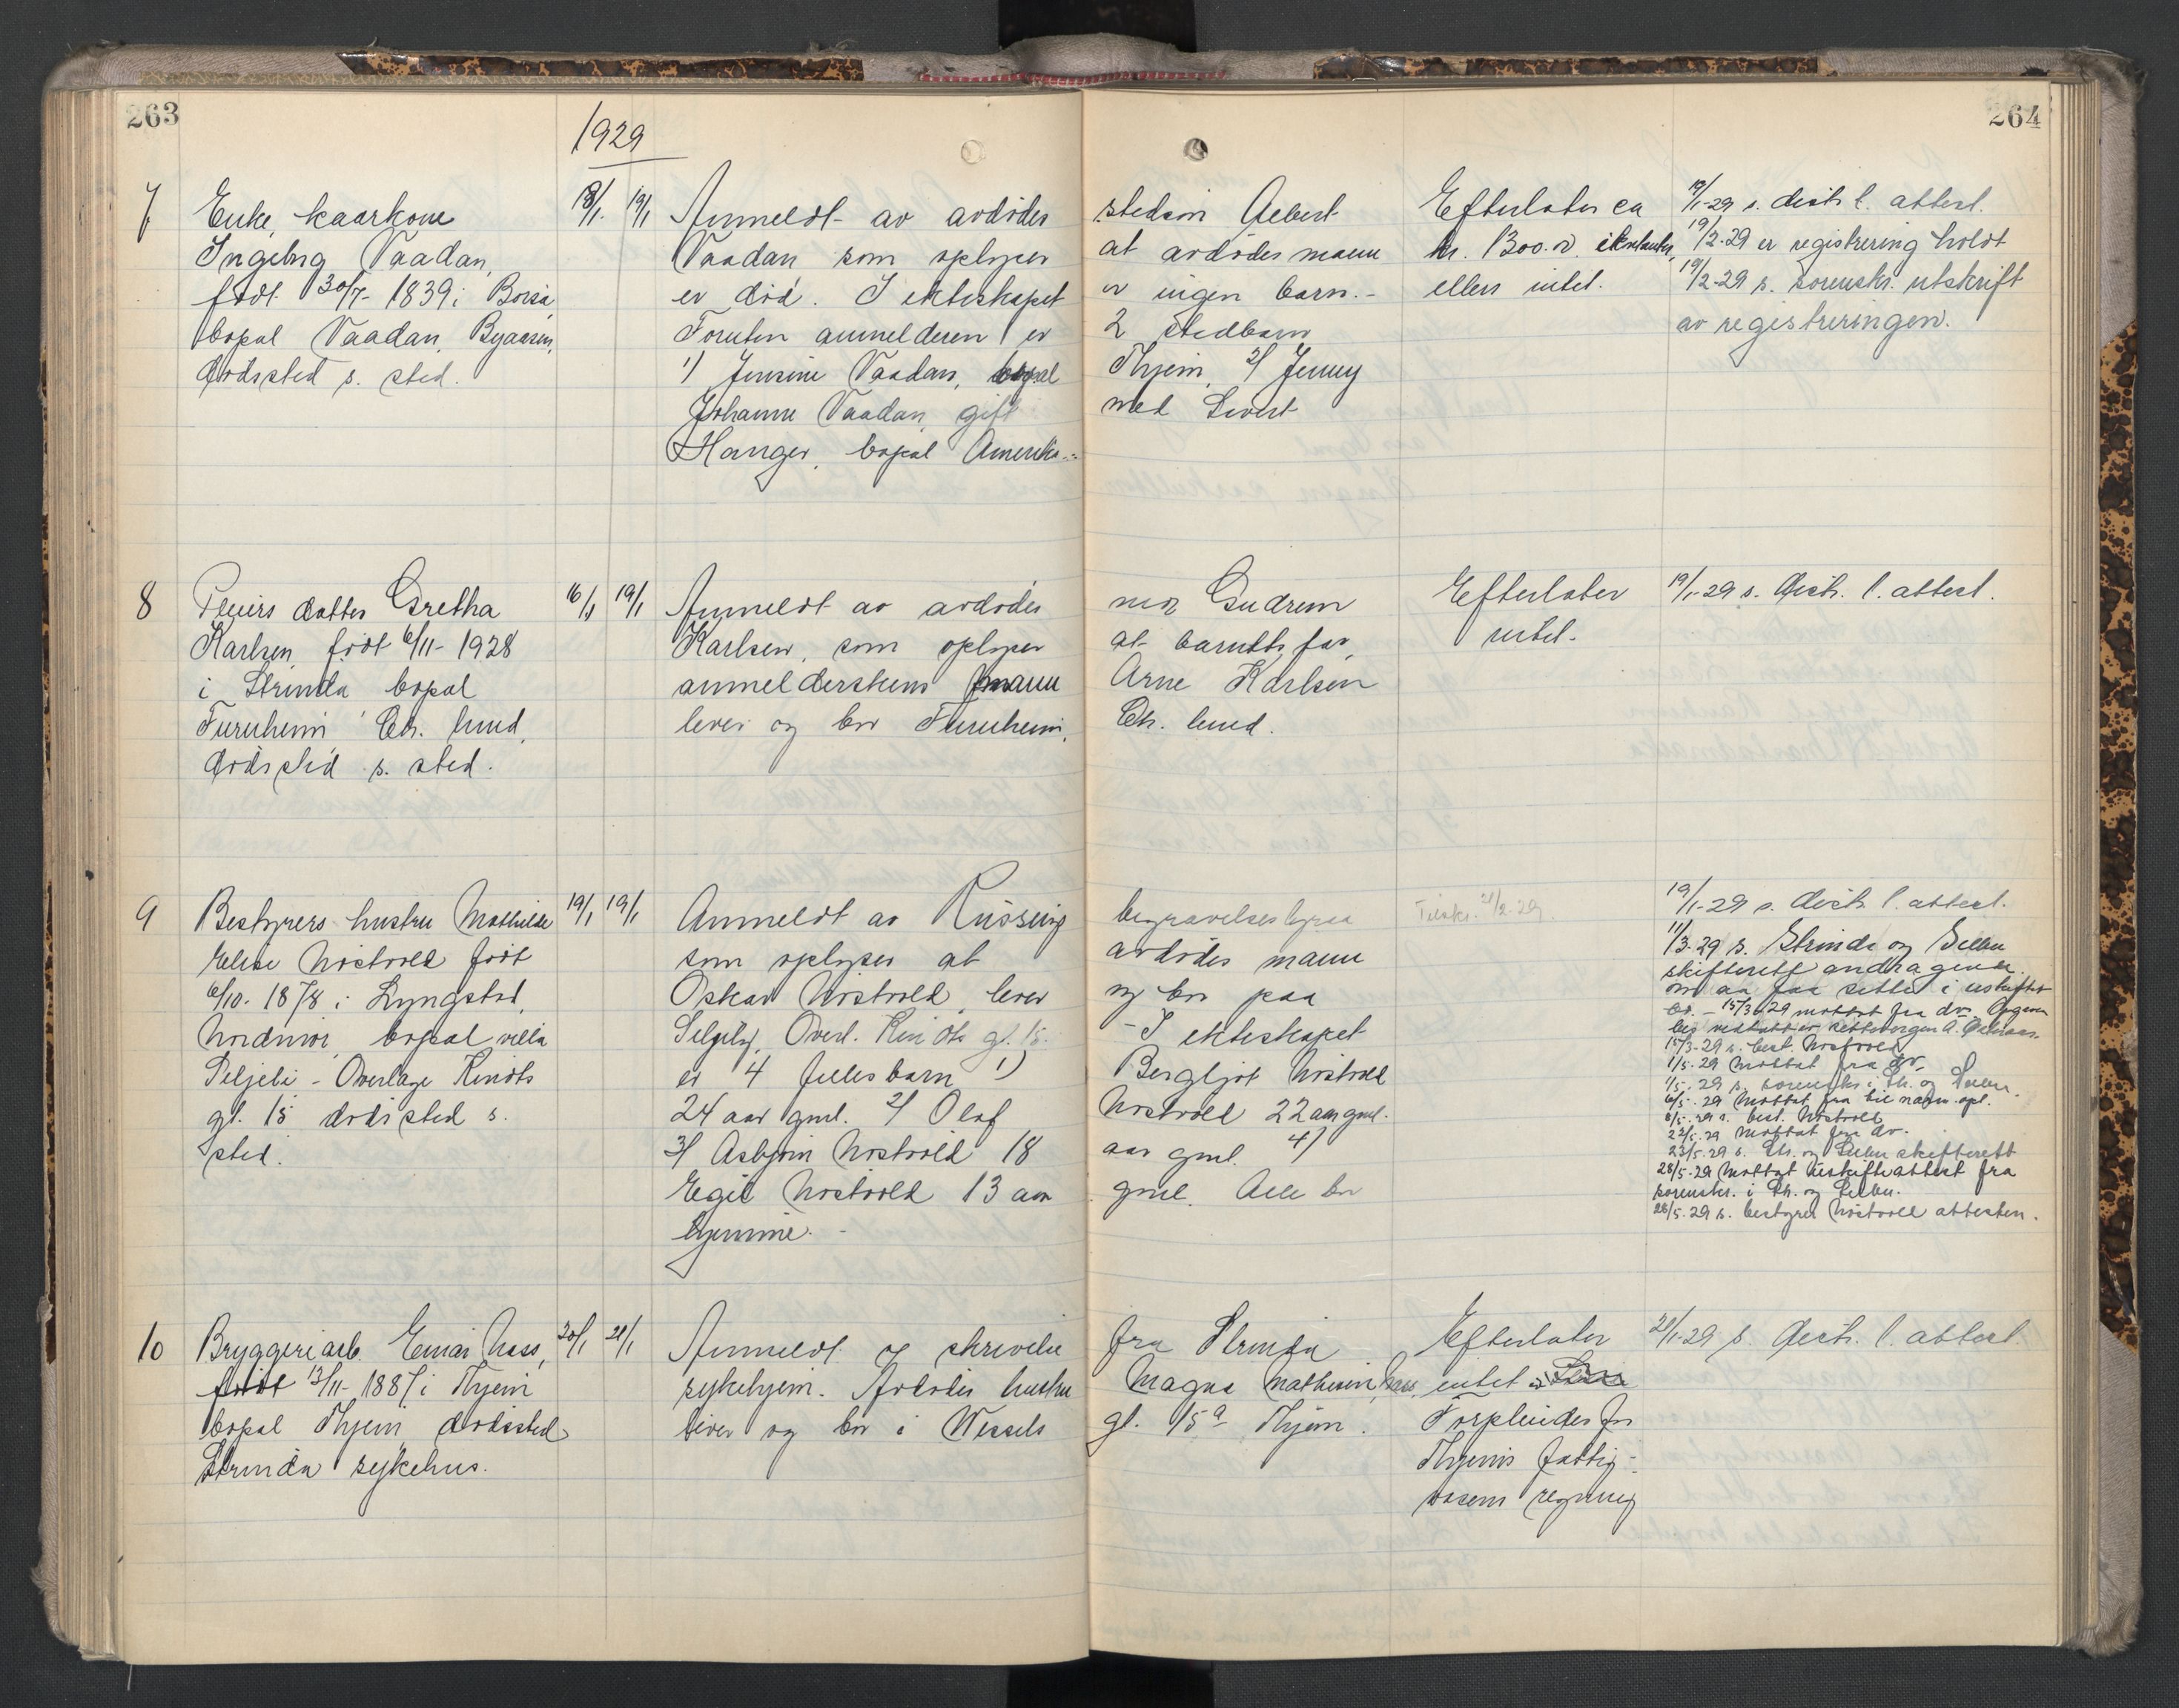 263
264
1929
7
Enke, kaarkone
Ingebrg Vaadan,
født 30/7- 1839 i Børsa,
bopæl Vaadan, Byaasen,
dødssted s. sted.
18/1. 19/1
Anmeldt av avdødes stedsøn Aebert
Vaadan som oplyser at avdødes mann
er død. I ekteskapet er ingen barn.-
Foruten anmelderen er 2 stedbarn
1) Jensine Vaadan, bopæl Thjem, 2/ Jenny
Johanne Vaadan, gift med Sivert
Hanger, bopæl Amerika.-
Efterlater ca
kr. 1300.-
ellers intet.
19/1-29 s. distr. l. attest.
19/2-29 er registrering holdt
19/2-29 s. sorenskr. utskrift
av registreringen.
8
Pleiers datter Gretha
Karlsen, født 6/11- 1928
i Strinda bopæl
Furuheim Ch. lund,
dødssted s. sted.
16/1 19/1
Anmeldt av avdødes mor Gudrun
Karlsen, som oplyser at barnets far,
anmelderskens mann Arne Karlsen
lever og bor Furuheim, Ch. lund.
Efterlater
intet.
19/1-29 s. distr. l. attest.
9
Bestyrers hustru Mathilde
Elise Nostvold født
6/10- 1878 i Lyngstad,
Nordmør, bopæl villa
Seljeli - Overlæge Kindts
gt. 15 dødssted s.
sted.
19/1 19/1
Anmeldt av Russing begravelsesbyraa
som oplyser at avdødes mann
Oskar Nostvold, lever og bor paa
Seljeli, Overl. Kindts gt. 15. - I ekteskapet
er 4 fellesbarn 1) Bergljot Nostvold
24 aar gml. 2/ Olaf Nostvold 22 aar gml.
3/ Asbjørn Nostvold 18 aar gml. 4/
Egil Nostvold 13 aar gml. Alle bor
hjemme.-
Tilskr. 21/2-29.
19/1-29 s. distr. l. attest.
11/3-29 s. Strinda og Selbu
skifterett andragende
om aa faa sitte i uskiftet
bo. - 15/3-29 mottat fra do.
15/3-29 s. best. Nostvold
1/5-29 mottat fra do.
1/5-29 s. sorenskr. i Str. og Selbu.
6/5-29 mottat fra
6/5-29 s. best. Nostvold
22/5-29 mottat fra do.
23/5-29 s. Str. og Selbu skifterett
28/5-29 mottat uskifteattest fra
sorenskr. i Str. og Selbu.
28/5-29 s. bestyrer Nostvold attesten.
10
Bryggeriarb. Einar Næss,
født 13/11- 1887 i Thjem
bopæl Thjem, dødssted
Strinda sykehus.
20/1 21/1
Anmeldt og skrivelse fra Strinda
sykehjem. Avdødes hustru Magna Mathisen Næss,
lever og bor i Wessels gt. 15a Thjem.
Efterlater
intet
Forpleiedes for
Thjems fattig-
væsens regning
21/1-29 s. distr. l. attest.